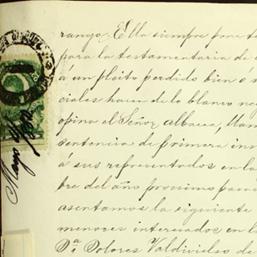 rango. Ella siempre fue
para la testamentaria de
á un pleito perdido bien o
ciales hacen de lo blanco ne
opino el Señor albacea, llam
sentencia de primera in
á sus representados en la
bre del año proximo pasa
asentamos la siguiente
menores interesados en la
Dª Dolores Valdivielso de
Mayo